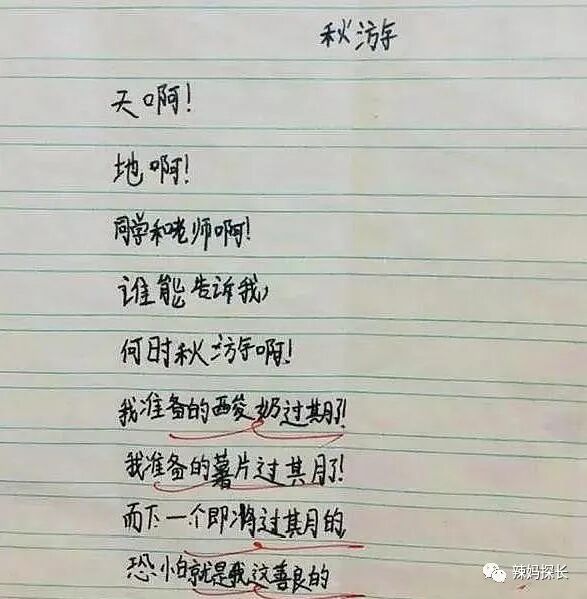 秋游
天啊！
地啊！
同学和老师啊！
谁能告诉我，
何时秋游啊！
我准备的酸奶过期了！
我准备的薯片过期了！
而下一个即将过期的，
恐怕就是我这善良的
辣妈探长